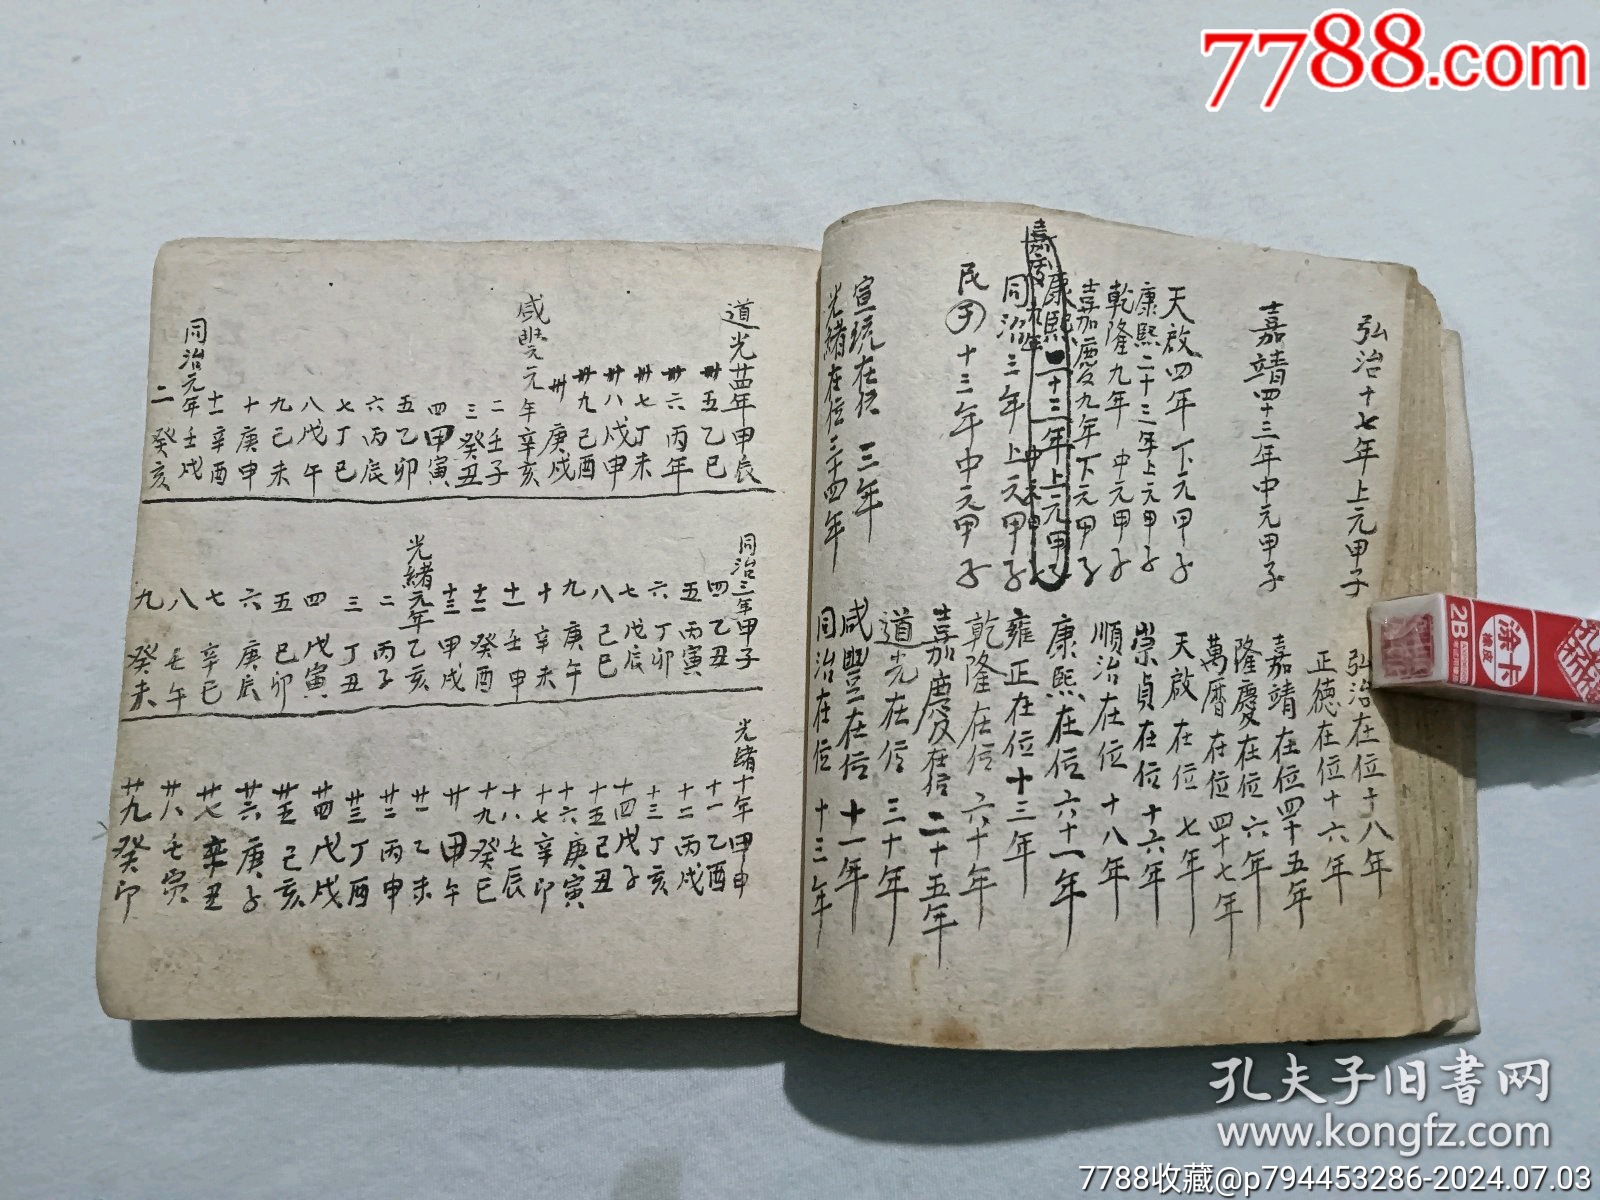 7788.com
弘治十七年上元甲子
嘉靖四十三年中元甲子
天啟四年下元甲子
康熙二十三年上元甲子
乾隆九年中元甲子
嘉慶九年下元甲子
康熙二十三年上元甲子
同治三年上元甲子
民子十三年中元甲子
宣統在位三年
光緒在位三十四年
弘治在位十八年
正德在位十六年
嘉靖在位四十五年
隆慶在位六年
萬曆在位四十七年
天啟在位七年
崇貞在位十六年
順治在位十八年
康熙在位六十一年
雍正在位十三年
乾隆在位六十年
嘉慶在位二十五年
道光在位三十年
咸豐在位十一年
同治在位十三年
道光廿四年甲辰
廿五乙巳
廿六丙年
廿七丁未
廿八戊申
廿九己酉
卅庚戌
咸豐元年辛亥
二壬子
三癸丑
四甲寅
五乙卯
六丙辰
七丁巳
八戊午
九己未
十庚申
十一辛酉
同治元年壬戌
二癸亥
同治三年甲子
四乙丑
五丙寅
六丁卯
七戊辰
八己巳
九庚午
十辛未
十一壬申
十二癸酉
十三甲戌
光緒元年乙亥
二丙子
三丁丑
四戊寅
五己卯
六庚辰
七辛巳
八壬午
九癸未
光緒十年甲申
十一乙酉
十二丙戌
十三丁亥
十四戊子
十五己丑
十六庚寅
十七辛卯
十八壬辰
十九癸巳
廿甲午
廿一乙未
廿二丙申
廿三丁酉
廿四戊戌
廿五己亥
廿六庚子
廿七辛丑
廿八壬寅
廿九癸卯
2B
涂卡
橡皮
孔夫子旧书网
www.kongfz.com
7788收藏@p794453286-2024.07.03